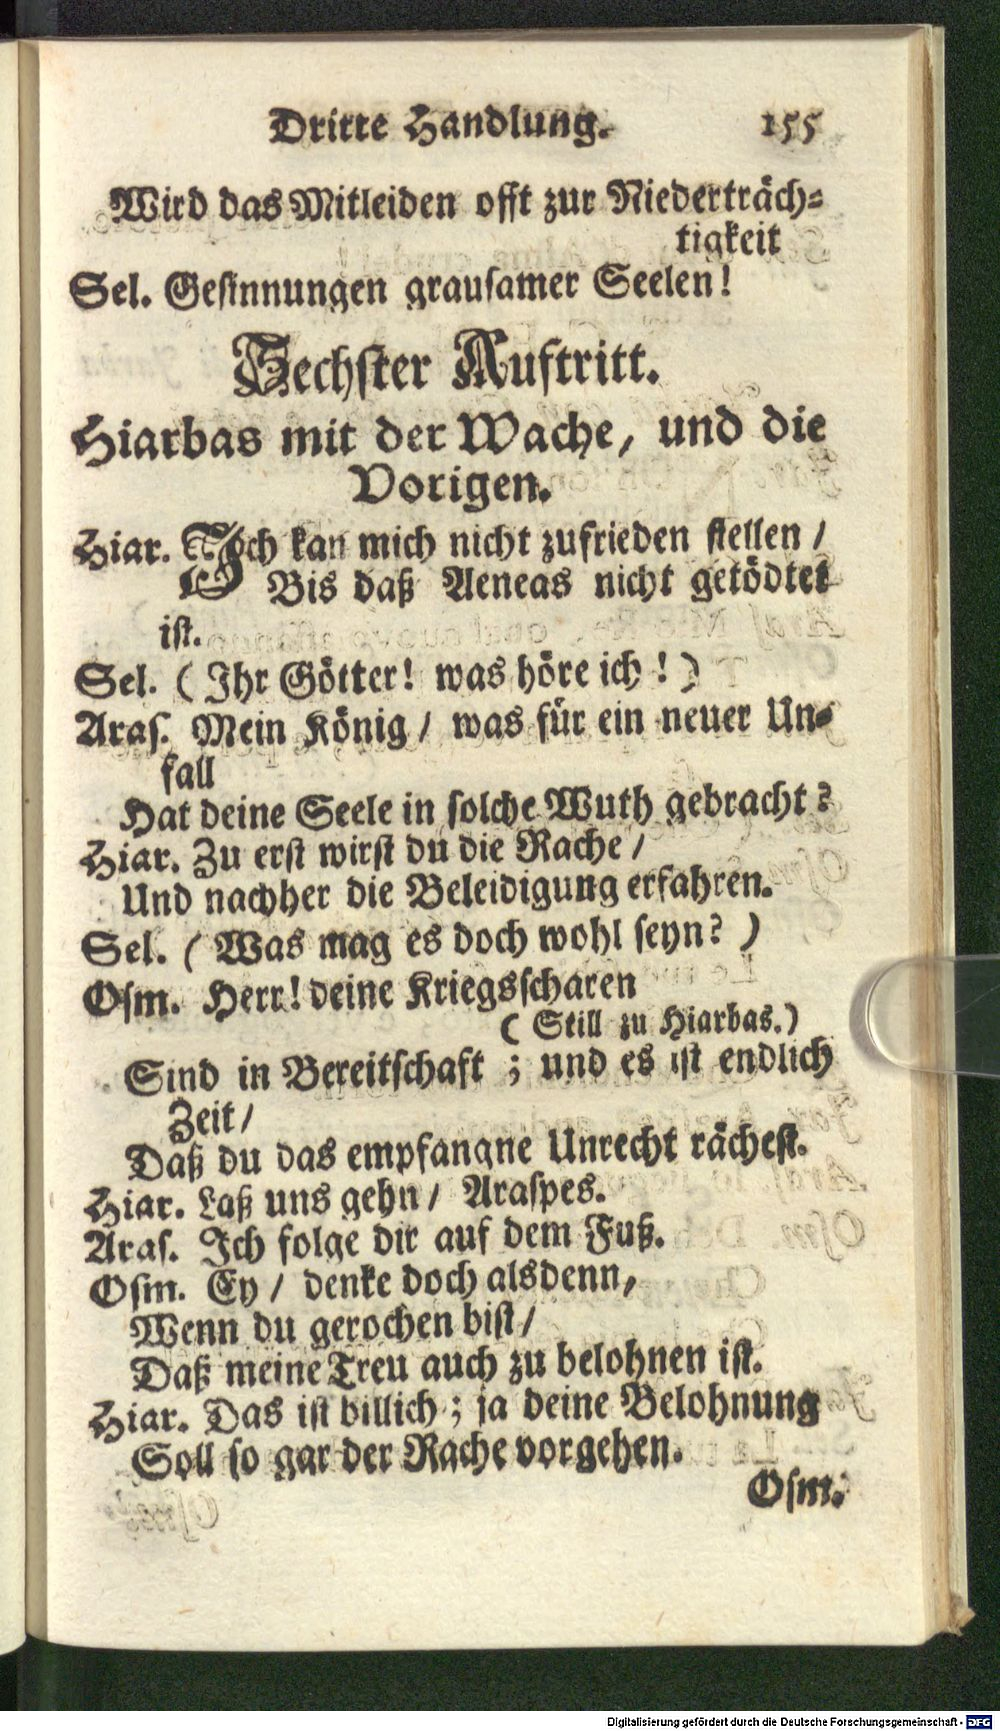 Dritte Handlung. 155
Wird das Mitleiden offt zur Niederträch⸗
tigkeit
Sel. Gesinnungen grausamer Seelen!
Sechster Auftritt.
Hiarbas mit der Wache, und die
Vorigen.
Hiar. Ich kan mich nicht zufrieden stellen /
Bis daß Aeneas nicht getödtet
ist.
Sel. (Ihr Götter! was höre ich!)
Aras. Mein König / was für ein neuer Un⸗
fall
Hat deine Seele in solche Wuth gebracht?
Hiar. Zu erst wirst du die Rache /
Und nachher die Beleidigung erfahren.
Sel. (Was mag es doch wohl seyn?)
Osm. Herr! deine Kriegsscharen
(Still zu Hiarbas.)
Sind in Bereitschaft; und es ist endlich
Zeit /
Daß du das empfangne Unrecht rächest.
Hiar. Laß uns gehn / Araspes.
Aras. Ich folge dir auf dem Fuß.
Osm. Ey / denke doch alsdenn,
Wenn du gerochen bist /
Daß meine Treu auch zu belohnen ist.
Hiar. Das ist billich; ja deine Belohnung
Soll so gar der Rache vorgehen.
Osm.
Digitalisierung gefördert durch die Deutsche Forschungsgemeinschaft - DFG